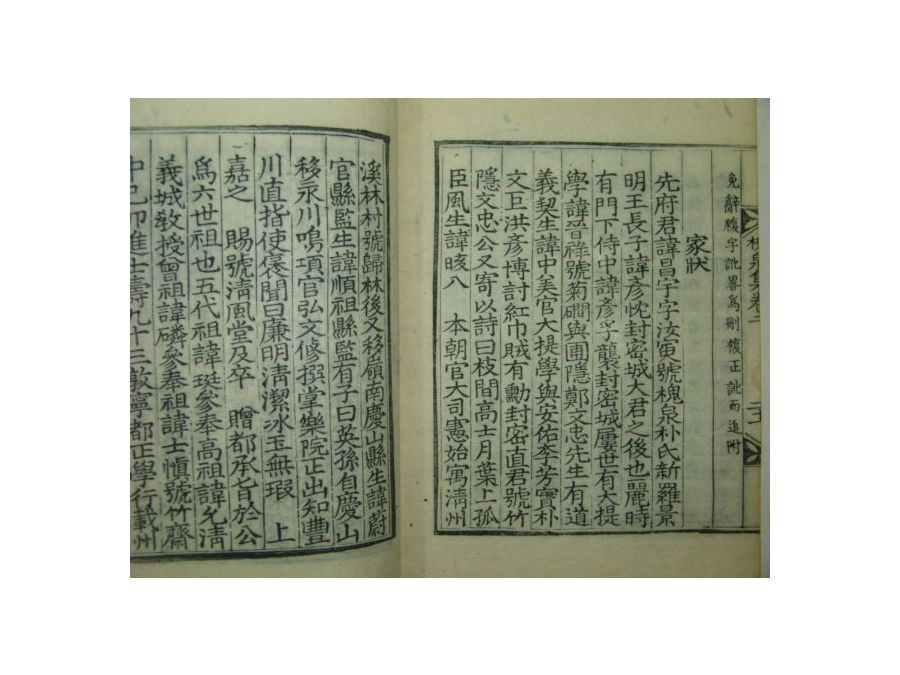 槐泉集卷二
免辭腹字訛畧爲刪 複正訛而追附
家狀
先府君諱昌宇字汝寅號槐泉朴氏新羅景
明王長子諱彥忱封密城大君之後也麗時
有門下侍中諱彥孚襲封密城屢世有大提
學諱晉祿號菊磵與圃隱鄭文忠先生有道
義契生諱中美官大提學與安佑李芳實朴
文巨洪彥博討紅巾賊有勳封密直君號竹
隱文忠公又寄以詩曰枝間高士月葉上孤
臣風生諱晐入 本朝官大司憲始寓淸州
溪林村號歸林後又移嶺南慶山縣生諱蔚
官縣監生諱順祖縣監有子曰英孫自慶山
移永川鳴項官弘文修撰掌樂院正出知豊
川直指使褒聞曰廉明淸潔冰玉無瑕 上
嘉之 賜號淸風堂及卒 贈都承旨於公
爲六世祖也五代祖諱珽參奉高祖諱允淸
義城敎授曾祖諱磷參奉祖諱士愼號竹齋
中己卯進士壽九十三敍寧都正學行載州